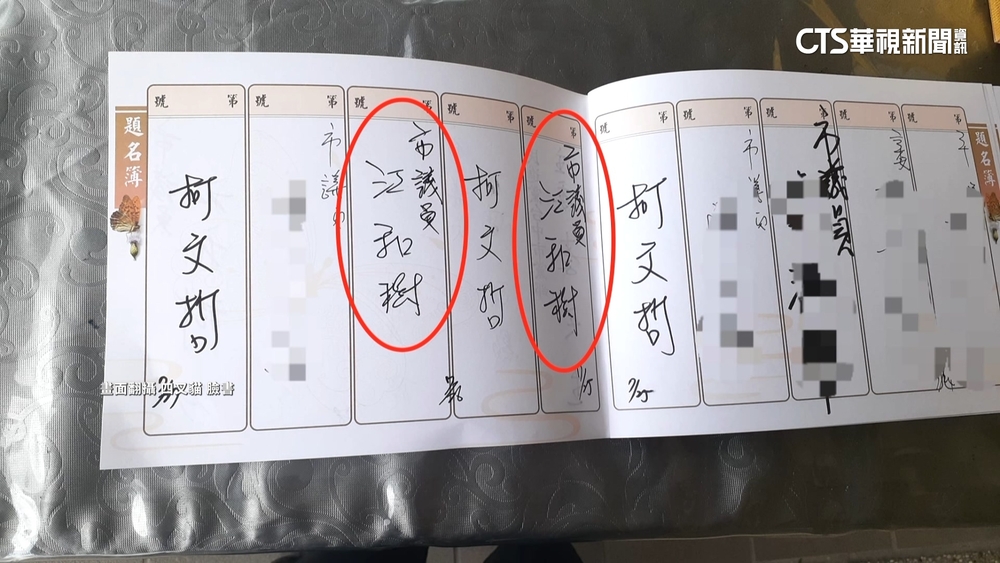 CTS華視新聞資訊
題名簿
題名簿
第 號
王
第 號
議員
第 號
市議員
第 號
市議員
第 號
柯文哲
第 號
市議員
江和樹
第 號
柯文哲
第 號
市議員
江和樹
第 號
市議員
第 號
柯文哲
畫面翻攝 四叉貓 臉書